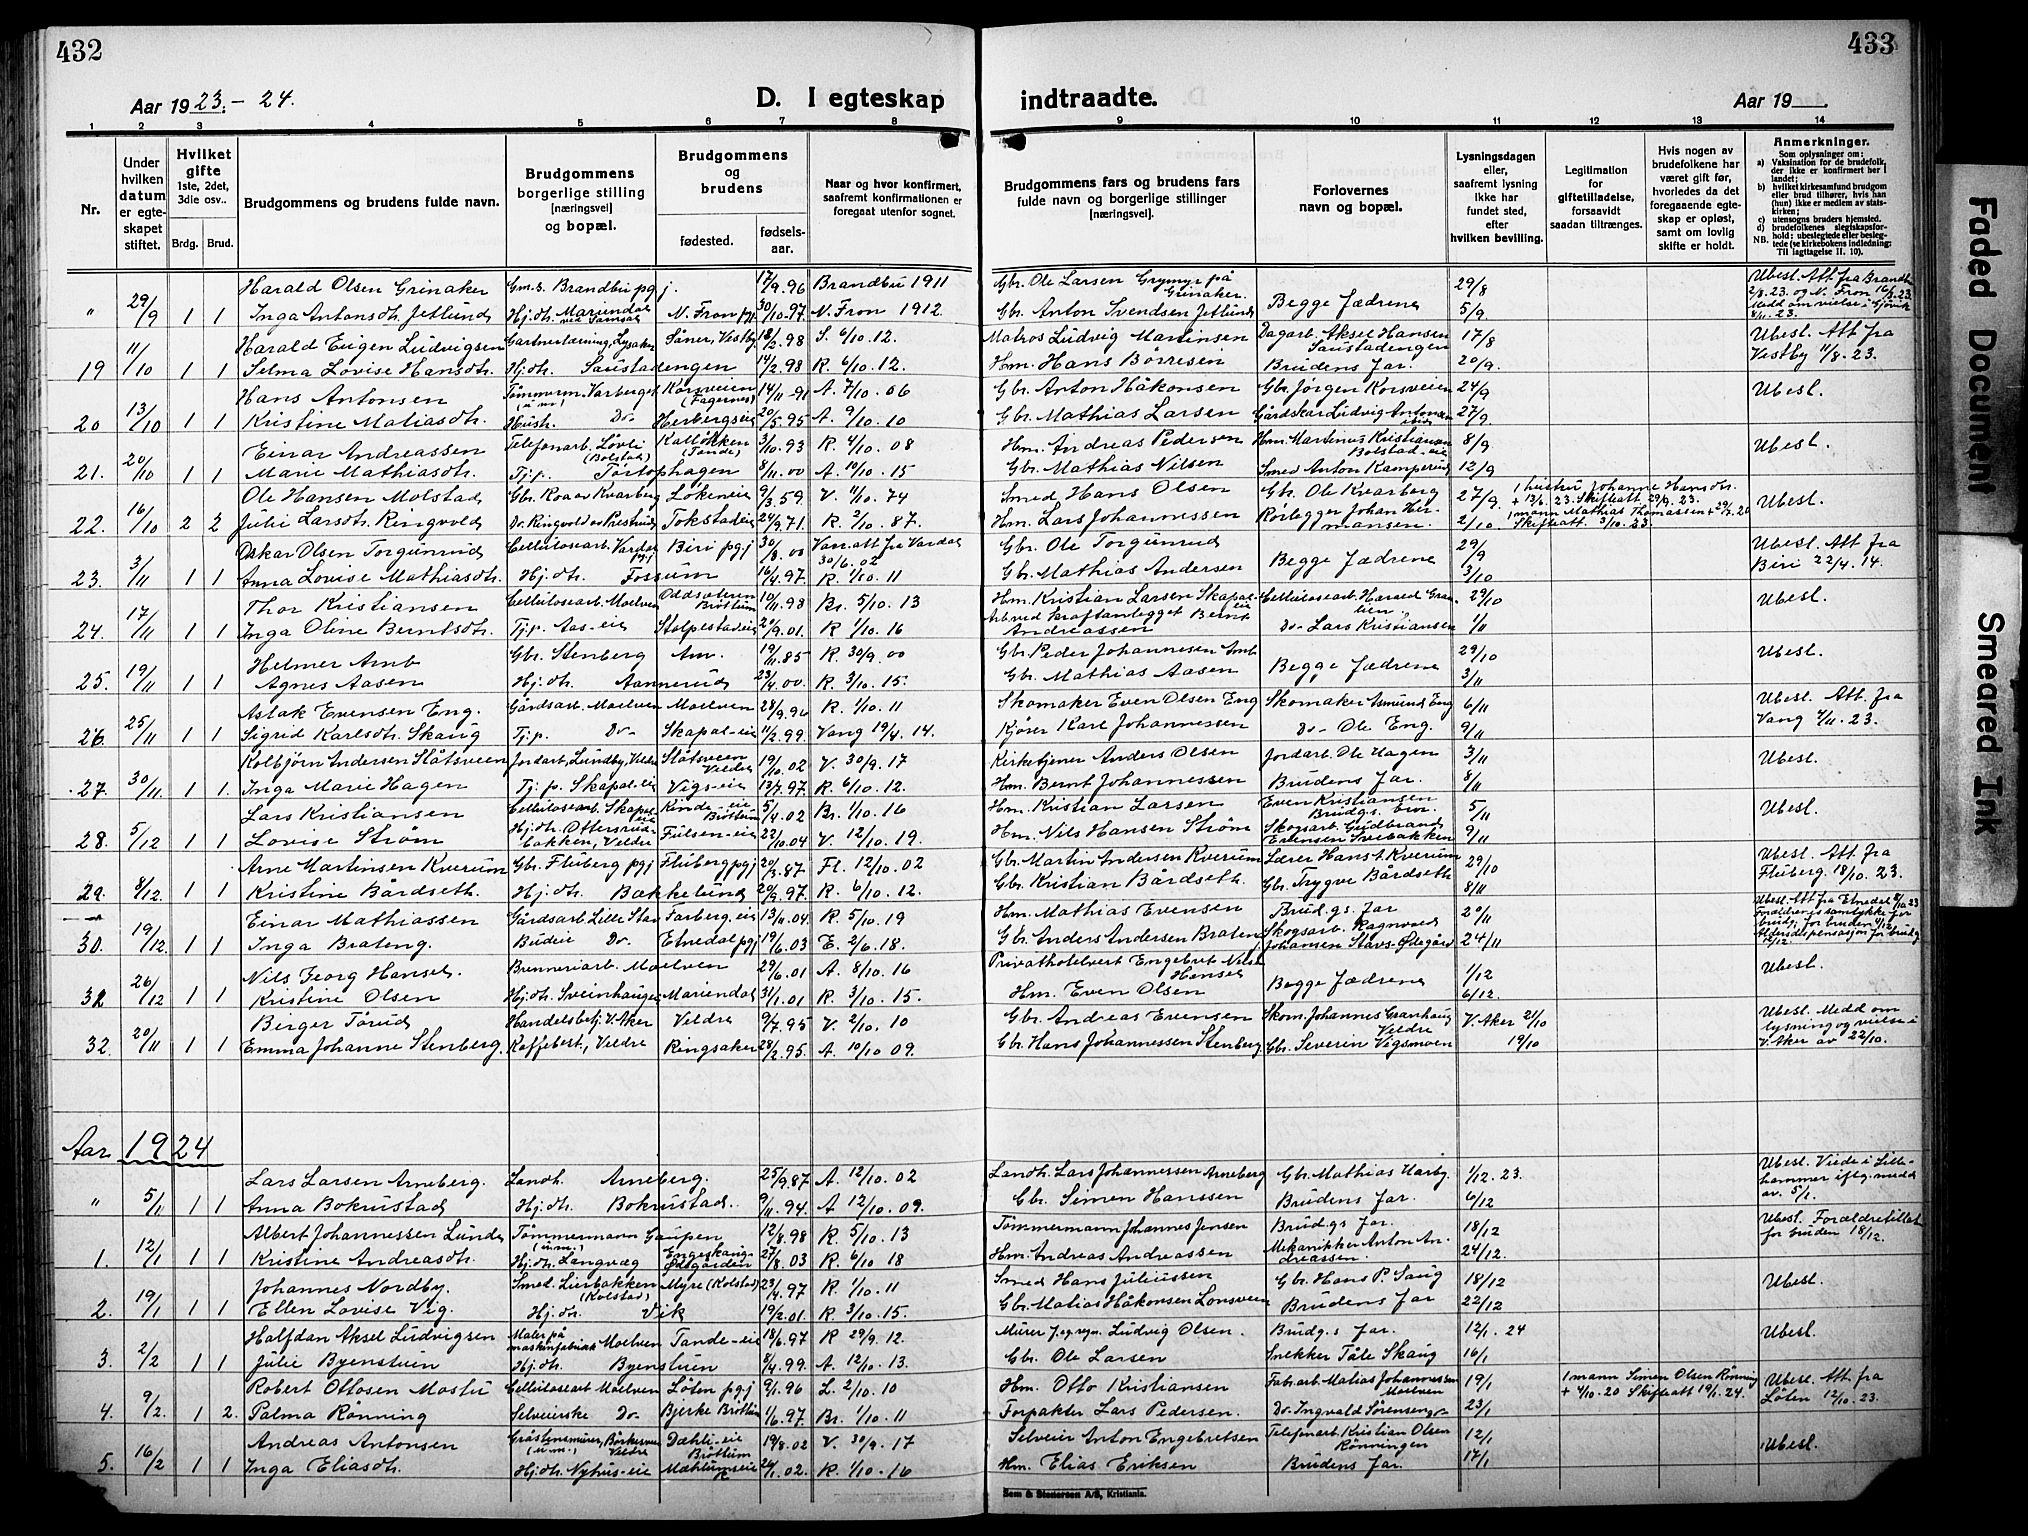 432
433
Aar 1923.-24.
D. I egteskap
indtraadte.
Aar 19 .
1 2 3 4 5 6 7 8 9 10 11 12 13 14
Nr.
Under hvilken datum er egteskapet stiftet.
Hvilket gifte 1ste, 2det, 3die osv..
Brdg. Brud.
Brudgommens og brudens fulde navn.
Brudgommens borgerlige stilling [næringsvei] og bopæl.
Brudgommens og brudens
fødested.
fødselsaar.
Naar og hvor konfirmert, saafremt konfirmationen er foregaat utenfor sognet.
Brudgommens fars og brudens fars fulde navn og borgerlige stillinger [næringsvei].
Forlovernes navn og bopæl.
Lysningsdagen eller, saafremt lysning ikke har fundet sted, efter hvilken bevilling.
Legitimation for giftetilladelse, forsaavidt saadan tiltrænges.
Hvis nogen av brudefolkene har været gift før, hvorledes da det foregaaende egteskap er opløst, samt om lovlig skifte er holdt.
Anmerkninger.
Som oplysninger om:
a) Vaksination for de brudefolk, der ikke er konfirmert her i landet;
b) hvilket kirkesamfund brudgom eller brud tilhører, hvis han (hun) ikke er medlem av statskirken;
c) utensogns bruders hjemsted.
d) brudefolkenes slegtskapsforhold: ubeslegtede eller beslegtede (se kirkebokens indledning: Til Iagttagelse II. 10).
NB.
Harald Olsen Grinaker Gms. Brandbu pgj. 17/9.96 Brandbu 1911 Gbr. Ole Larsen Grymyr på Grinaker. 29/8 Ubesl. Att. fra
" 29/9 1 1 Inga Antonsdtr. Jetlund Hj.dtr. N. Fron pgj 30/10.97 N. Fron 1912. Gbr. Anton Svendsen Jetlund Begge Fædrene 5/9
Harald Eugen Ludvigsen Såner, Vestby 18/2.98 S. 6/10.12. Matros Ludvig Martinsen Dagarb. Aksel Hansen Saustadengen 17/8 Ubesl. Att fra
19 11/10 1 1 Selma Lovise Hansdtr. Hj.dtr. Saustadengen 14/2.98 R. 6/10.12. Hm. Hans Börresen Brudens Far. 20/9. Vestby 11/8.23.
Hans Antonsen Korsveien 14/11-91 A. 7/10.06 Gbr. Anton Håkonsen Gbr. Jørgen Korsveien 24/9 Ubesl.
20 13/10 1 1 Kristine Matiasdtr. Hush. Do Herbergseie 20/5.95 A. 9/10.10 Gbr. Mathias Larsen 27/9.
Einar Andreassen Telefonarb. Lövli (Bolstad) 3/10.93 R. 4/10.08 Hm. Andreas Pedersen Hm. Martinus Kristiansen Bolstad-eie 8/9 Ubesl.
21. 20/10 1 1 Marie Mathiasdtr. Tj.p. Törtophagen 8/11.00 A. 10/10.15 Gbr. Mathias Nilsen Smed Anton Kamperud 12/9
Ole Hansen Molstad Gbr. Roa av Kvarberg Lökeneie 9/3.59 V. 11/10.74 Smed Hans Olsen Gbr. Ole Kvarberg 27/9. 1 hustru Johanne Hansdtr. + 13/6.23. Skifteatt 29/9.23. Ubesl.
22. 16/10 2 2 Julie Larsdtr. Ringvold Do. Ringvold av Prestrud Tokstadeie 24/9.71. R. 2/10.87. Hm. Lars Johannessen Rørlegger Johan Hermansen. 2/10 1 mann Mathias Thomassen + 29/7.20 Skifteatt. 3/10.23
Oskar Olsen Torgunrud Cellulosearb. Vardal pgj. Biri pgj 30/8.00 Vac. att fra Vardal 30/6.02 Gbr. Ole Torgunrud 29/9 Ubesl. Att fra
23. 3/11 1 1 Anna Lovise Mathiasdtr. Hj.dtr. Fossum 16/4.97 R. 1/10.11 Gbr. Mathias Andersen Begge Fædrene 3/10 Biri 22/4.14.
Thor Kristiansen Cellulosearb. Moelven Brøttum 10/11.98 Br. 5/10.13 Hm. Kristian Larsen Skapal-eie Cellulosearb. Harald 29/10 Ubesl.
24. 17/11 1 1 Inga Oline Berntsdtr. Tj.p. Aas-eie Stolpestadeie 20/9.01. R 1/10.16 Arb. ved kraftanlegget Bernt Andreassen Do- Lars Kristiansen 1/11
Helmer Amb Gbr. Stenberg Am. 19/11.85 R. 30/9.00 Gbr. Peder Johannesen Amb 29/10 Ubesl.
25. 19/11 1 1 Agnes Aasen Hj.dtr. Aannerud 23/4.00. R. 3/10.15. Gbr. Mathias Aasen Begge Fædrene 3/11
Aslak Evensen Eng. Gårdsarb. Moelven Moelven 28/9.96 R. 1/10.11 Skomaker Even Olsen Eng Skomaker Asmund Eng 6/11 Ubesl. Att. fra
26. 25/11 1 1 Sigrid Karlsdtr. Skaug Tj.p. Do- Skapal-eie 11/2.99. Vang 19/4.14. Kjører Karl Johannessen Do- Ole Eng. 9/11 Vang 4/11.23.
Kolbjørn Andersen Slåtsveen Jordarb. Lundby, Veldre Slåtsveen Veldre 19/10.02 V. 30/9.17 Kirketjener Anders Olsen Jordarb. Ole Hagen 3/11 Ubesl.
27. 30/11 1 1. Inga Marie Hagen Tj.p. Skapal-eie Vigs-eie 13/7.97 R. 6/10.12. Hm. Bernt Johannessen Brudens Far. 8/11
Lars Kristiansen Cellulosearb. Skapal-eie Brøttum 5/4.02 Br. 1/10.16 Hm. Kristian Larsen Even Kristiansen Brudg.s bror. 5/11 Ubesl.
28. 5/12 1 1 Lovise Ström Hj.dtr. Ottersrudbakken, Veldre Fulsen-eie 22/10.04 V. 12/10.19. Hm. Nils Hansen Ström Skogsarb. Gudbrand Evensen Sveibakken 9/11
Arne Martinsen Kverum Gbr. Fluberg pgj Fluberg pgj 20/3.87 Fl. 12/10.02 Gbr. Martin Andersen Kverum Lærer Hans t. Kverum 29/10 Ubesl. Att. fra
29. 8/12 1 1 Kristine Bårdseth. Hj.dtr. Bækkelund 20/9.97 R. 6/10.12. Gbr. Kristian Bårdseth. Gbr. Trygve Bårdseth 8/11 Fluberg. 18/10.23.
Einar Mathiassen Gårdsarb. Lille Stav Farberg-eie 13/11.04. R. 5/10.19 Hm. Mathias Evensen Brudg.s far 20/11 Ubesl. Att fra Etnedal 4/12 23
30. 19/12 1 1 Inga Brateng. Budeie Do. Etnedal pgj 19/6.03 E. 2/6.18. Gbr. Anders Andersen Braten Skogsarb. Ragnvald Johansen Stavs-Ødegård 24/11 Forældrenes samtykke for brudg., for bruden 4/12. Aldersdispensasjon for brudg 12/12.
Nils Georg Hansel. Brenneriarb. Moelven 29/6.01 A. 8/10.16 Privathotelvert Engebret Nilsen Hansel 1/12 Ubesl.
31 26/12 1 1 Kristine Olsen Hj.dtr. Sveinhaugen Mariendal 31/1.01 R. 3/10.15. Hm. Even Olsen Begge Fædrene 6/12.
Birger Törud Handelsbetj. V. Aker Veldre 9/7.95 V. 2/10.10 Gbr. Andreas Evensen Skom. Johannes Granhaug Veldre V. Aker 21/10 Ubesl. Medd om
32. 20/11 1 1 Emma Johanne Stenberg. Kaffebest., Veldre Ringsaker 28/2.95. A. 10/10.09. Gbr. Hans Johannessen Stenberg Gbr. Severin Vigsmoen 19/10 lysning og vielse i V. Aker av 22/10.
Aar 1924
Lars Larsen Arneberg. Landh. Arneberg. 25/9.87 A. 12/10.02 Landh. Lars Johannessen Arneberg Gbr. Mathias Harby. 1/12.23. Ubesl. Viede i Lille-
" 5/1 1 1 Anna Bokrustad Hj.dtr. Bokrustad.. 9/11.94. A 12/10.09. Gbr. Simen Hanssen Brudens Far. 6/12 hammer iflg. medd av. 5/1.
Albert Johannessen Lunde Tömmermann Gaupen (u.m.) 12/8.98 R. 5/10.13 Tømmermann Johannes Jensen Brudg.s far. 18/12 Ubesl. Forældretillat.
1. 12/1 1 1 Kristine Andreasdtr. Hj.dtr. Langvæg Engeskaug-Ødegården 27/8.03 R. 6/10 18 Hm. Andreas Andreassen Mekanikker Anton Andreassen. 24/12. for bruden 18/12.
Johannes Nordby. Smed. Lierbakken (Kolstad) Myre (Kolstad) 23/4.97 R. 1/10.11 Smed Hans Juliussen Gbr. Hans P. Saug 18/12 Ubesl.
2. 19/1 1 1 Ellen Lovise Vig. Hj.dtr. Vik 19/2.01. R. 3/10.15. Gbr. Matias Håkonsen Lonsveen Brudens Far 22/12
Halfdan Aksel Ludvigsen Maler på maskinfabrikk Moelven Tande-eie 18/6.97 R 29/9.12. Murer Ludvig Olsen. Brudg.s far. 12/1.24 Ubesl.
3. 2/2 1 1 Julie Byenstuen Hj.dtr. Byenstuen 8/4.99. A. 12/10.13. Gbr. Ole Larsen Snekker Tåle Skaug 16/1
Robert Ottosen Mostu Cellulosearb Moelven Löten pgj 9/1.96 L. 2/10.10 Hm. Otto Kristiansen Fabr.arb. Matias Johannessen Moelven 19/1 1 mann Simen Olsen Rönning + 4/10.20 Skifteatt 19/1.24. Ubesl. Att. fra
4. 9/2. 1 2. Palma Rönning Selveierske Do. Bjerke Brøttum 1/6.97. Br. 1/10.11 Forpakter Lars Pedersen. Do. Ingvald Sørensen 23/1 Löten 12/10.23.
Andreas Antonsen Veldre (u.m.) Dæhli-eie Brøttum 19/8.02 V. 30/9.17 Selveier Anton Engebretsen Telefonarb. Kristian Olsen Rönningen 12/1 Ubesl.
5. 16/2 1 1 Inga Eliasdtr. Hj.dtr. Nyhus-eie Mæhlumseie 24/1.02. R. 1/10.16 Hm. Elias Eriksen Brudens Far. 17/1
Sem & Stenersen A/S, Kristiania.
Faded Document
Smeared Ink